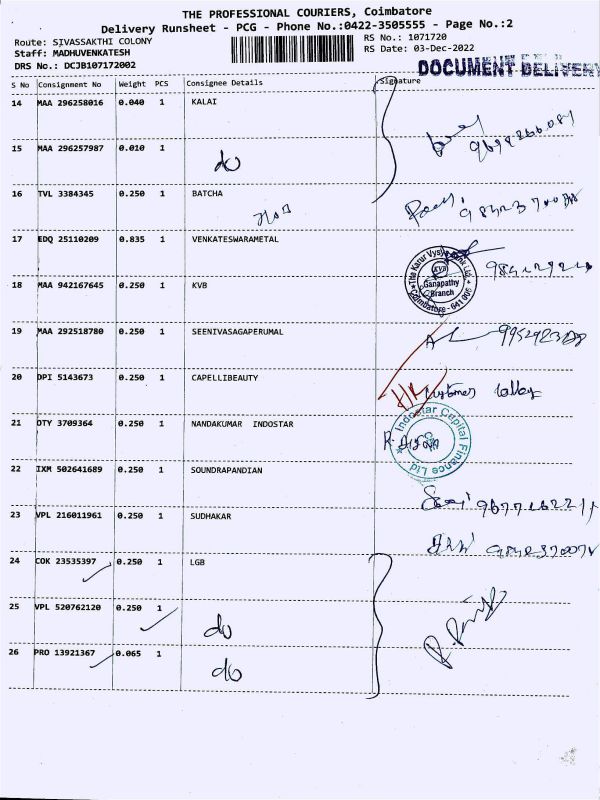 THE PROFESSIONAL COURIERS, Coimbatore
Delivery Runsheet - PCG - Phone No.:0422-3505555 - Page No.:2
Route: SIVASSAKTHI COLONY
RS No.: 1071720
Staff: MADHUVENKATESH
RS Date: 03-Dec-2022
DRS No.: DCJB107172002
DOCUMENT DELIVERY
S No Consignment No Weight PCS Consignee Details Signature
14 MAA 296258016 0.040 1 KALAI
15 MAA 296257987 0.010 1
do
16 TVL 3384345 0.250 1 BATCHA
17 EDQ 25110209 0.835 1 VENKATESWARAMETAL
The Karur Vysya Bank Ltd.
KVB
Ganapathy
Branch
Coimbatore - 641 006
18 MAA 942167645 0.250 1 KVB
19 MAA 292518780 0.250 1 SEENIVASAGAPERUMAL
20 DPI 5143673 0.250 1 CAPELLIBEAUTY
Customer
21 OTY 3709364 0.250 1 NANDAKUMAR INDOSTAR
Indostar Capital Finance Ltd
22 IXM 502641689 0.250 1 SOUNDRAPANDIAN
23 VPL 216011961 0.250 1 SUDHAKAR
24 COK 23535397 0.250 1 LGB
25 VPL 520762120 0.250 1
do
26 PRO 13921367 0.065 1
do